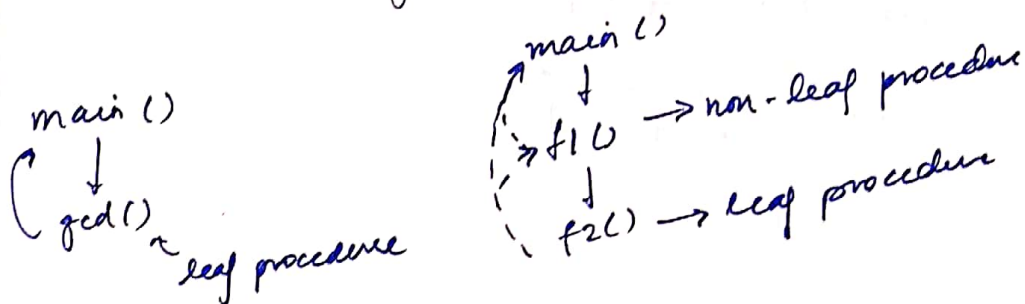 main ()
gcd ()
leaf procedure
main ()
f1 () → non-leaf procedure
f2 () → leaf procedure